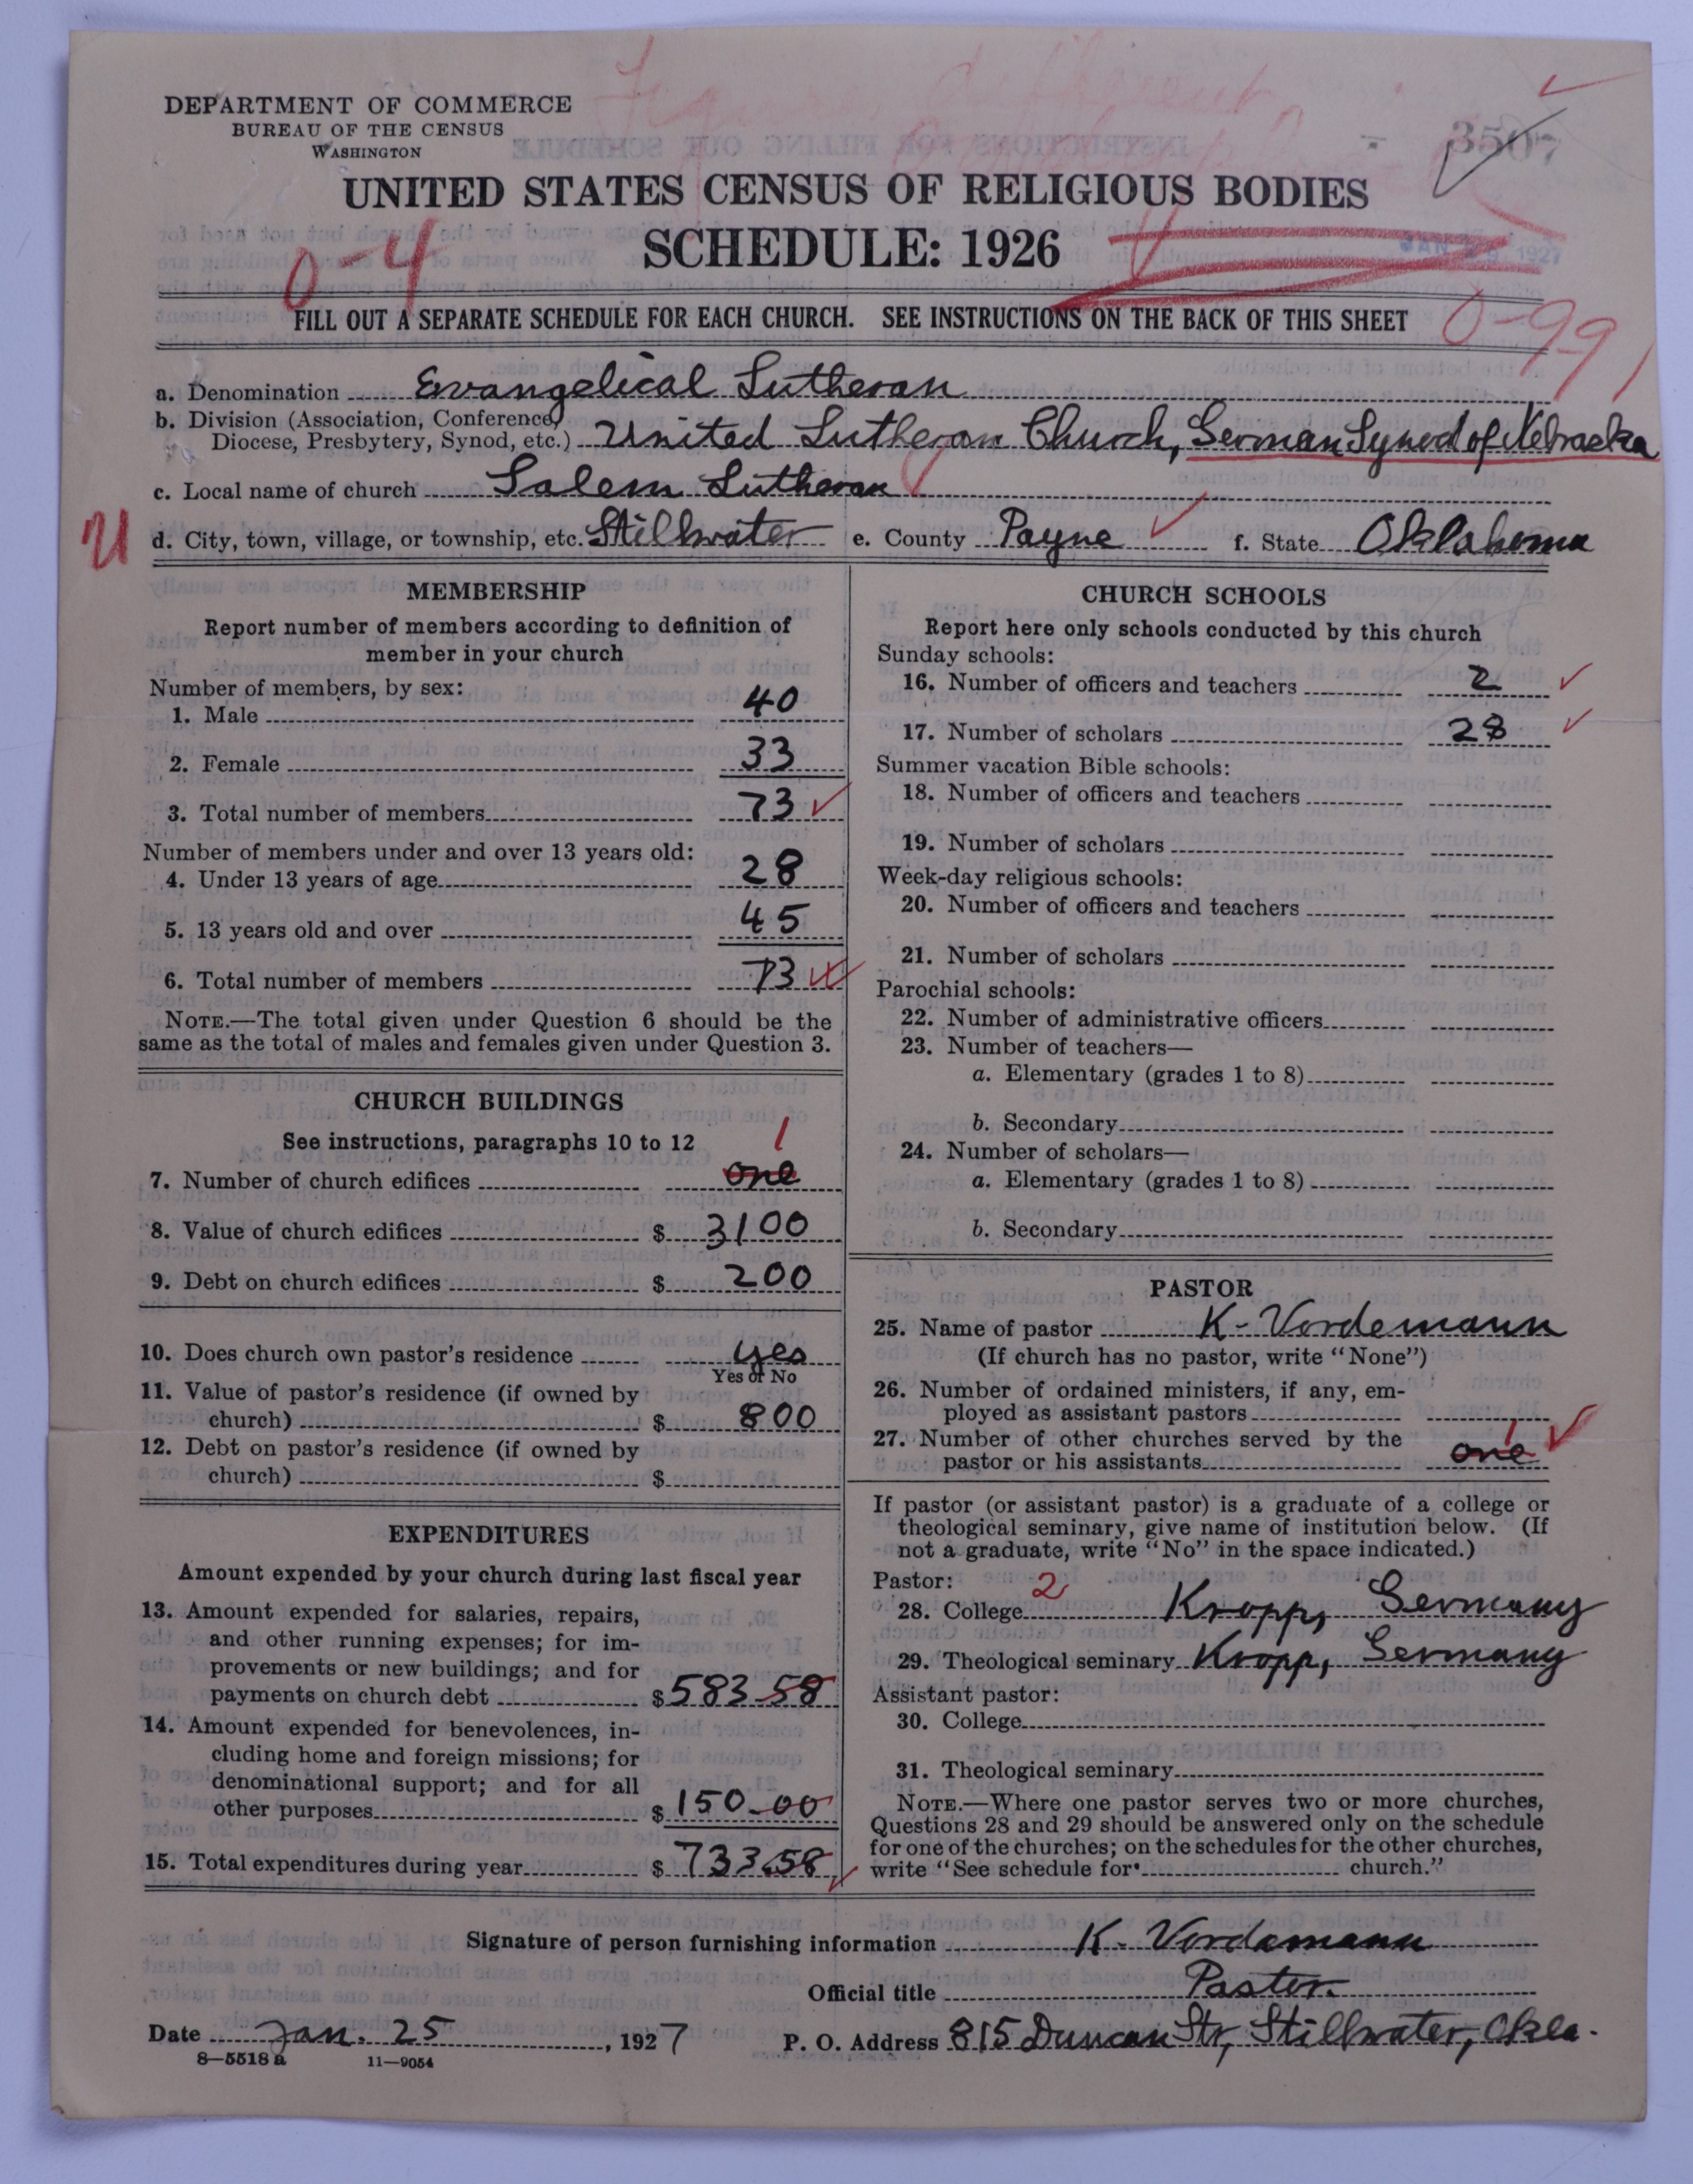 DEPARTMENT OF COMMERCE
BUREAU OF THE CENSUS
WASHINGTON
3507
UNITED STATES CENSUS OF RELIGIOUS BODIES
SCHEDULE: 1926
0-4
JAN 1927
FILL OUT A SEPARATE SCHEDULE FOR EACH CHURCH. SEE INSTRUCTIONS ON THE BACK OF THIS SHEET
0-99
a. Denomination Evangelical Lutheran
b. Division (Association, Conference,
Diocese, Presbytery, Synod, etc.) United Lutheran Church, German Synod of Nebraska
c. Local name of church Salem Lutheran
d. City, town, village, or township, etc. Stillwater e. County Payne f. State Oklahoma
MEMBERSHIP
Report number of members according to definition of
member in your church
Number of members, by sex:
1. Male 40
2. Female 33
3. Total number of members 73
Number of members under and over 13 years old:
4. Under 13 years of age 28
5. 13 years old and over 45
6. Total number of members 73
NOTE.—The total given under Question 6 should be the
same as the total of males and females given under Question 3.
CHURCH BUILDINGS
See instructions, paragraphs 10 to 12
1
7. Number of church edifices one
8. Value of church edifices $ 3100
9. Debt on church edifices $ 200
10. Does church own pastor's residence yes
Yes or No
11. Value of pastor's residence (if owned by
church) $ 800
12. Debt on pastor's residence (if owned by
church) $
EXPENDITURES
Amount expended by your church during last fiscal year
13. Amount expended for salaries, repairs,
and other running expenses; for im-
provements or new buildings; and for
payments on church debt $ 583.58
14. Amount expended for benevolences, in-
cluding home and foreign missions; for
denominational support; and for all
other purposes $ 150.00
15. Total expenditures during year $ 733.58
CHURCH SCHOOLS
Report here only schools conducted by this church
Sunday schools:
16. Number of officers and teachers 2
17. Number of scholars 28
Summer vacation Bible schools:
18. Number of officers and teachers
19. Number of scholars
Week-day religious schools:
20. Number of officers and teachers
21. Number of scholars
Parochial schools:
22. Number of administrative officers
23. Number of teachers—
a. Elementary (grades 1 to 8)
b. Secondary
24. Number of scholars—
a. Elementary (grades 1 to 8)
b. Secondary
PASTOR
25. Name of pastor K. Vordemann
(If church has no pastor, write "None")
26. Number of ordained ministers, if any, em-
ployed as assistant pastors
27. Number of other churches served by the
1
pastor or his assistants one
If pastor (or assistant pastor) is a graduate of a college or
theological seminary, give name of institution below. (If
not a graduate, write "No" in the space indicated.)
Pastor:
28. College 2 Kropp, Germany
29. Theological seminary Kropp, Germany
Assistant pastor:
30. College
31. Theological seminary
NOTE.—Where one pastor serves two or more churches,
Questions 28 and 29 should be answered only on the schedule
for one of the churches; on the schedules for the other churches,
write "See schedule for church."
Signature of person furnishing information K. Vordemann
Official title Pastor.
Date Jan. 25, 1927 P. O. Address 815 Duncan Str, Stillwater, Okla.
8—5518 a 11—9054